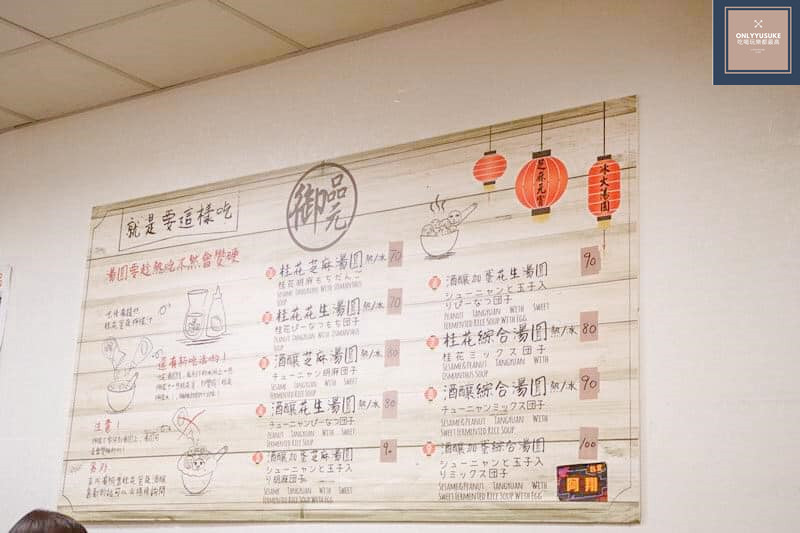 ONLYYUSUKE
吃喝玩樂都最高
就是要這樣吃
御品元
芝麻元宵
冰火湯圓
湯圓要趁熱吃不然會變硬
還有新吃法喲！
注意！
桂花芝麻湯圓 熱/冰 70
桂花胡麻もちだんご
Sesame Tangyuan With Osmanthus
Soup
桂花花生湯圓 熱/冰 70
桂花ぴーなつもち団子
Peanut Tangyuan With Osmanthus
Soup
酒釀芝麻湯圓 熱/冰 80
チューニャン胡麻団子
Sesame Tangyuan With Sweet
Fermented Rice Soup
酒釀花生湯圓 熱/冰 80
チューニャンぴーなつ団子
Peanut Tangyuan With Sweet
Fermented Rice Soup
酒釀加蛋芝麻湯圓 90
シューニャンと玉子入
り胡麻団子
Sesame Tangyuan With Sweet
Fermented Rice Soup With Egg
酒釀加蛋花生湯圓 90
シューニャンと玉子入
りぴーなつ団子
Peanut Tangyuan With Sweet
Fermented Rice Soup With Egg
桂花綜合湯圓 熱/冰 80
桂花ミックス団子
Sesame&Peanut Tangyuan With
Osmanthus Soup
酒釀綜合湯圓 熱/冰 90
チューニャンミックス団子
Sesame&Peanut Tangyuan With
Sweet Fermented Rice Soup
酒釀加蛋綜合湯圓 100
シューニャンと玉子入
りミックス団子
Sesame&Peanut Tangyuan With
Sweet Fermented Rice Soup With Egg
阿翔